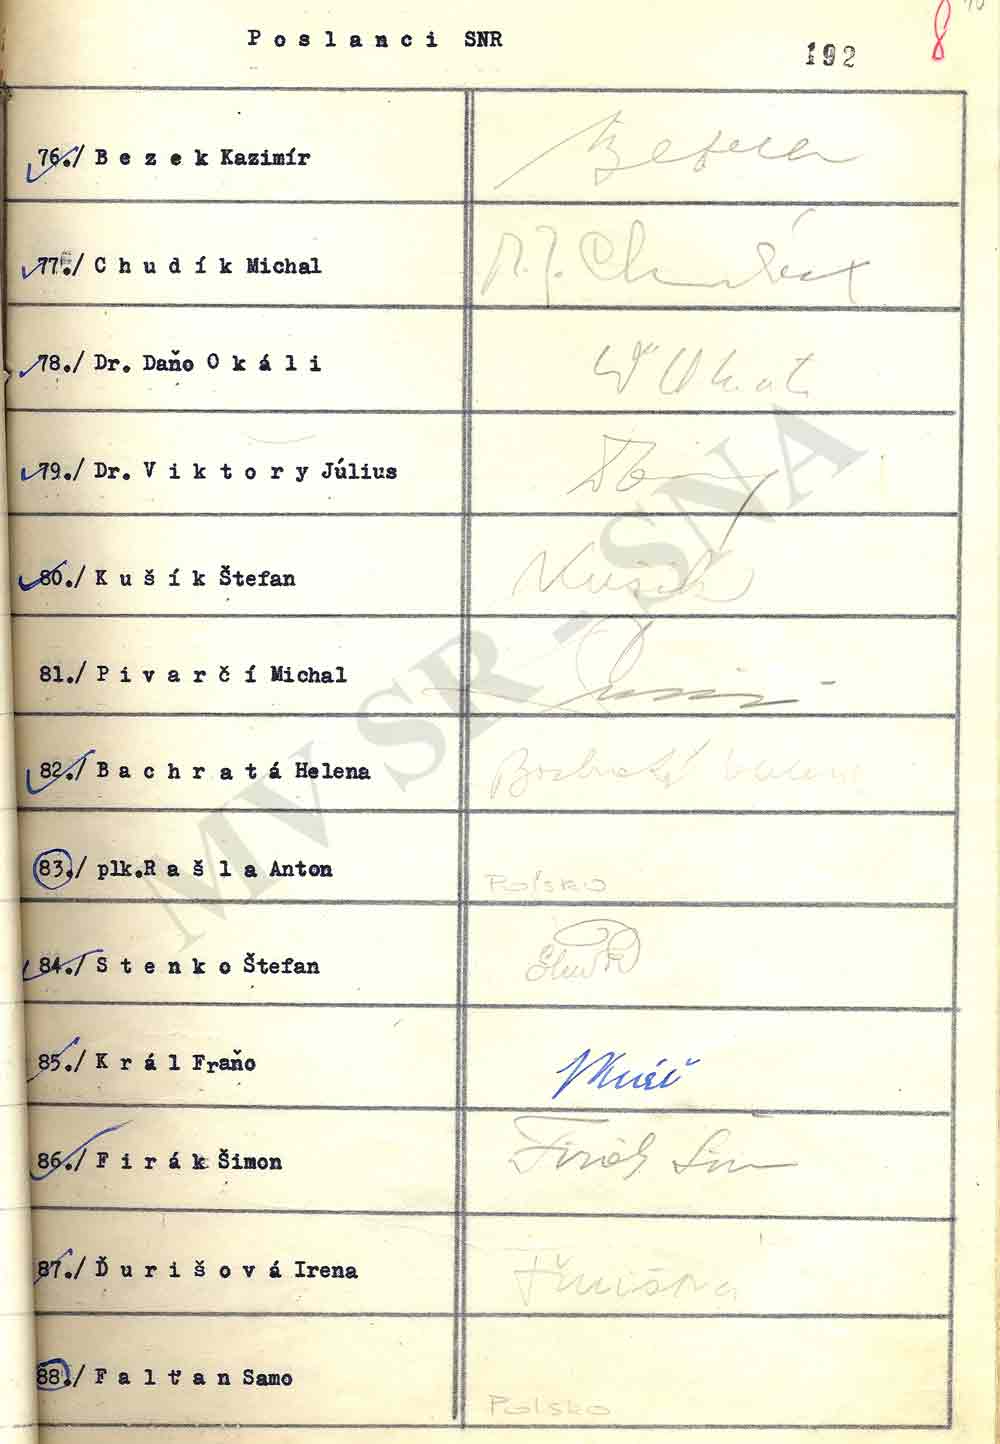 Poslanci SNR
192
8
76./ Bezek Kazimír
77./ Chudík Michal
M. J. Chudík
78./ Dr. Daňo Okáli
79./ Dr. Viktory Július
80./ Kušík Štefan
Kušík
81./ Pivarčí Michal
82./ Bachratá Helena
Bachratá Helena
83./ plk. Rašla Anton
Poľsko
84./ Stenko Štefan
85./ Král Fraňo
86./ Firák Šimon
Firák Šim
87./ Ďurišová Irena
Ďurišová
88./ Falťan Samo
Polsko
MV SR - SNA